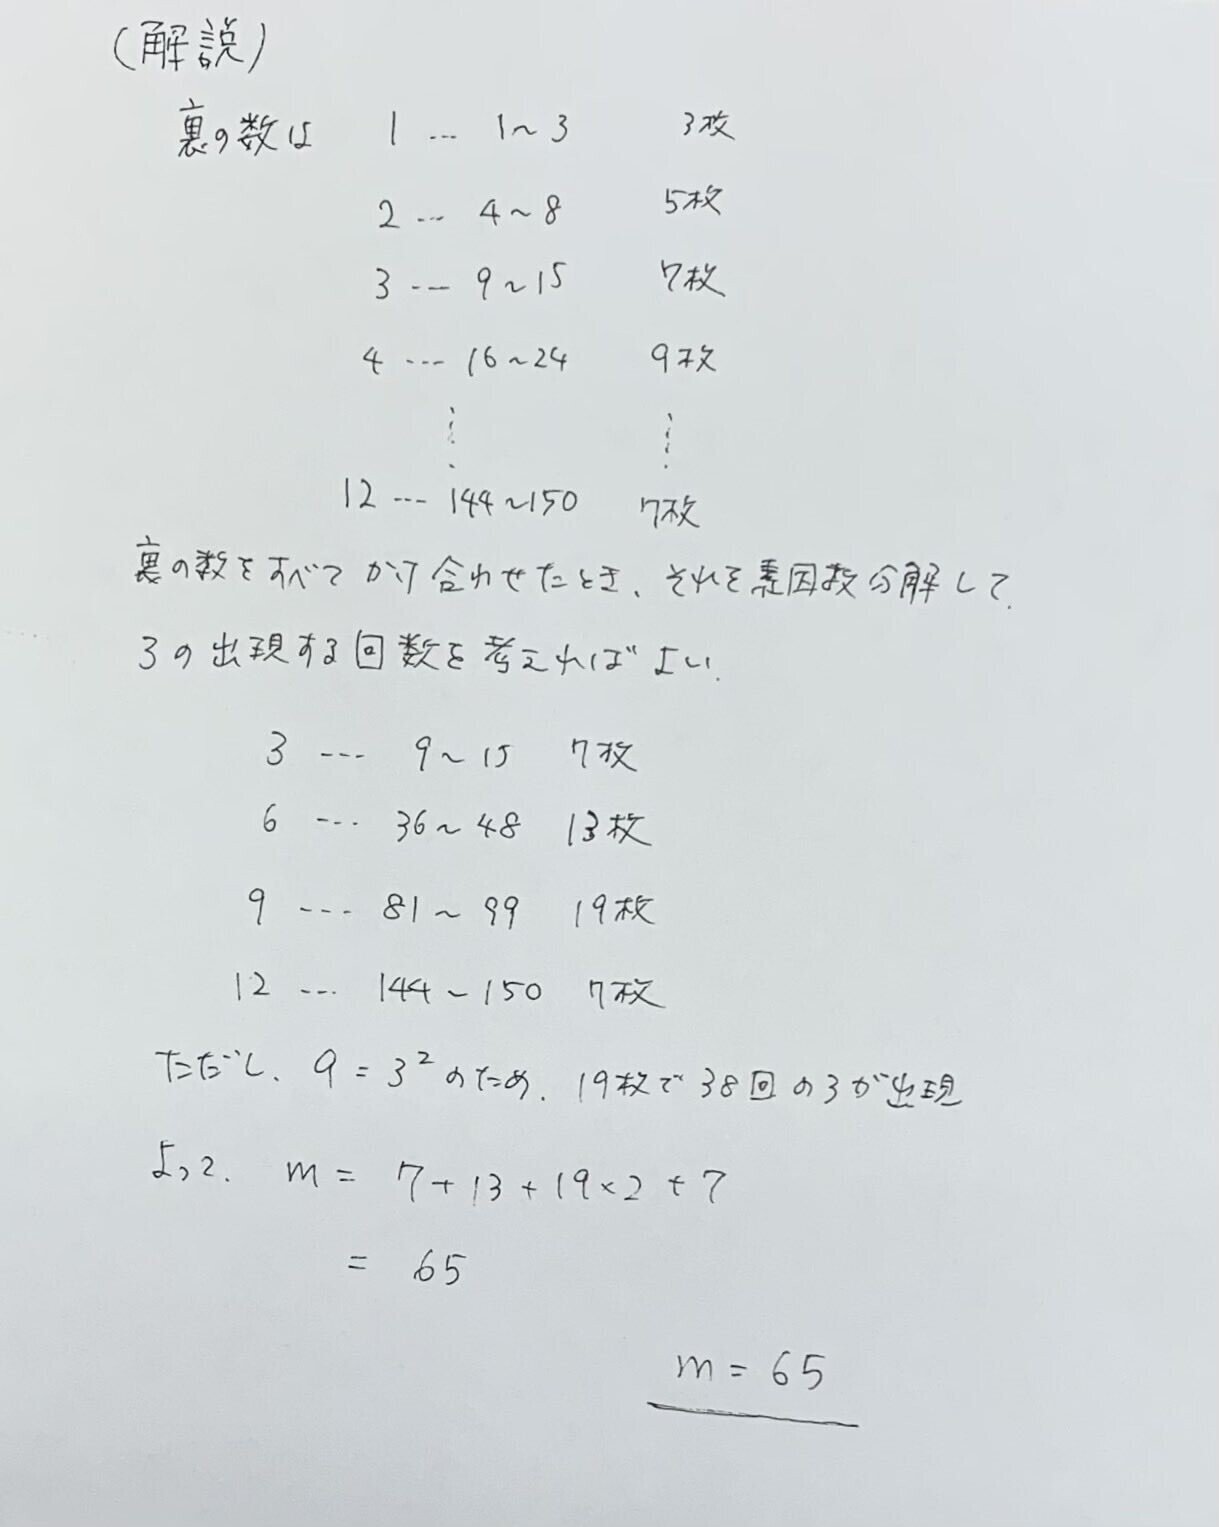 (解説)
裏の数は 1 … 1～3 3枚
2 … 4～8 5枚
3 … 9～15 7枚
4 … 16～24 9枚
⋮ ⋮
12 … 144～150 7枚
裏の数をすべてかけ合わせたとき、それを素因数分解して、
3の出現する回数を考えればよい.
3 … 9～15 7枚
6 … 36～48 13枚
9 … 81～99 19枚
12 … 144～150 7枚
ただし、9 = 3² のため、19枚で38回の3が出現
よって、 m = 7 + 13 + 19 × 2 + 7
= 65
m = 65